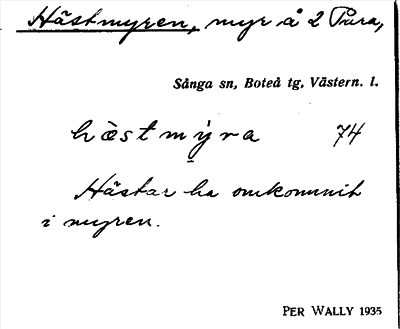 Hästmyren, myr å 2 Para,
Sånga sn, Boteå tg, Västern. l.
hästmýra 74
Hästar ha omkommit
i myren.
PER WALLY 1935